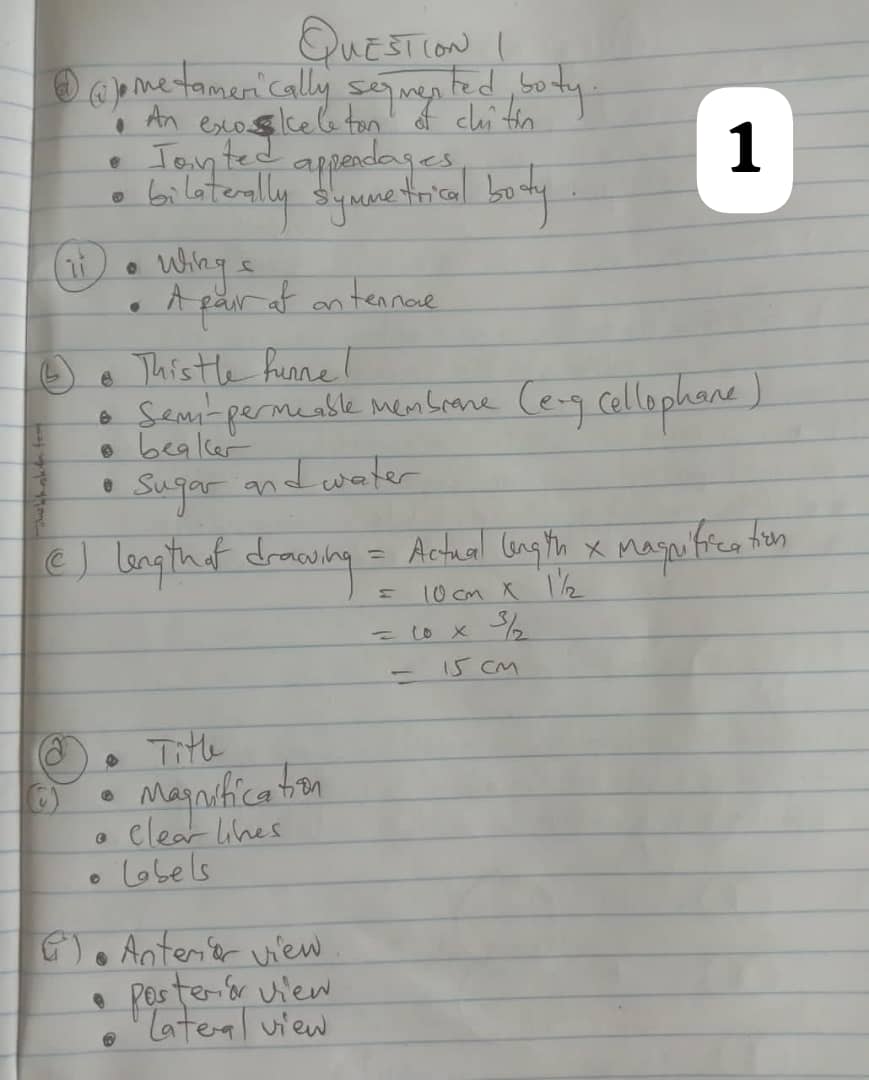 QUESTION 1
a (i) • metamerically segmented body.
• An exoskeleton of chitin
• Jointed appendages
• bilaterally symmetrical body.
1
(ii) • Wings
• A pair of antennae
(b) • Thistle funnel
• Semi-permeable membrane (e-g cellophane)
• beaker
• Sugar and water
(c) length of drawing = Actual length x Magnification
= 10 cm x 1 1/2
= 10 x 3/2
= 15 cm
(d) • Title
(i) • Magnification
• Clear lines
• Labels
(ii) • Anterior view
• Posterior view
• Lateral view